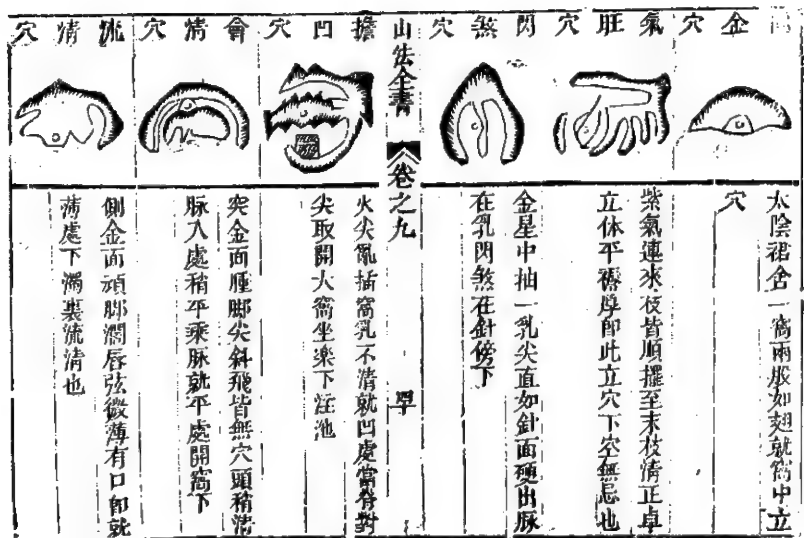 金穴
太陰裙舍一窩兩股如翅就窩中立
穴
氣旺穴
紫氣連來枝皆順擺至末枝清正卓
立休平褥厚即此立穴下空無忌也
閃煞穴
金星中抽一乳尖直如針面硬出脉
在乳閃煞在針傍下
山法全書
卷之九
四十
擔凹穴
火尖亂插窩乳不清就凹處當脊對
尖取開大窩坐樂下注池
會清穴
突金面腫脚尖斜飛皆無穴頭稍清
脉入處稍平乘脉就平處開窩下
流清穴
側金面頑脚濶唇弦微薄有口即就
薄處下濁裏流清也